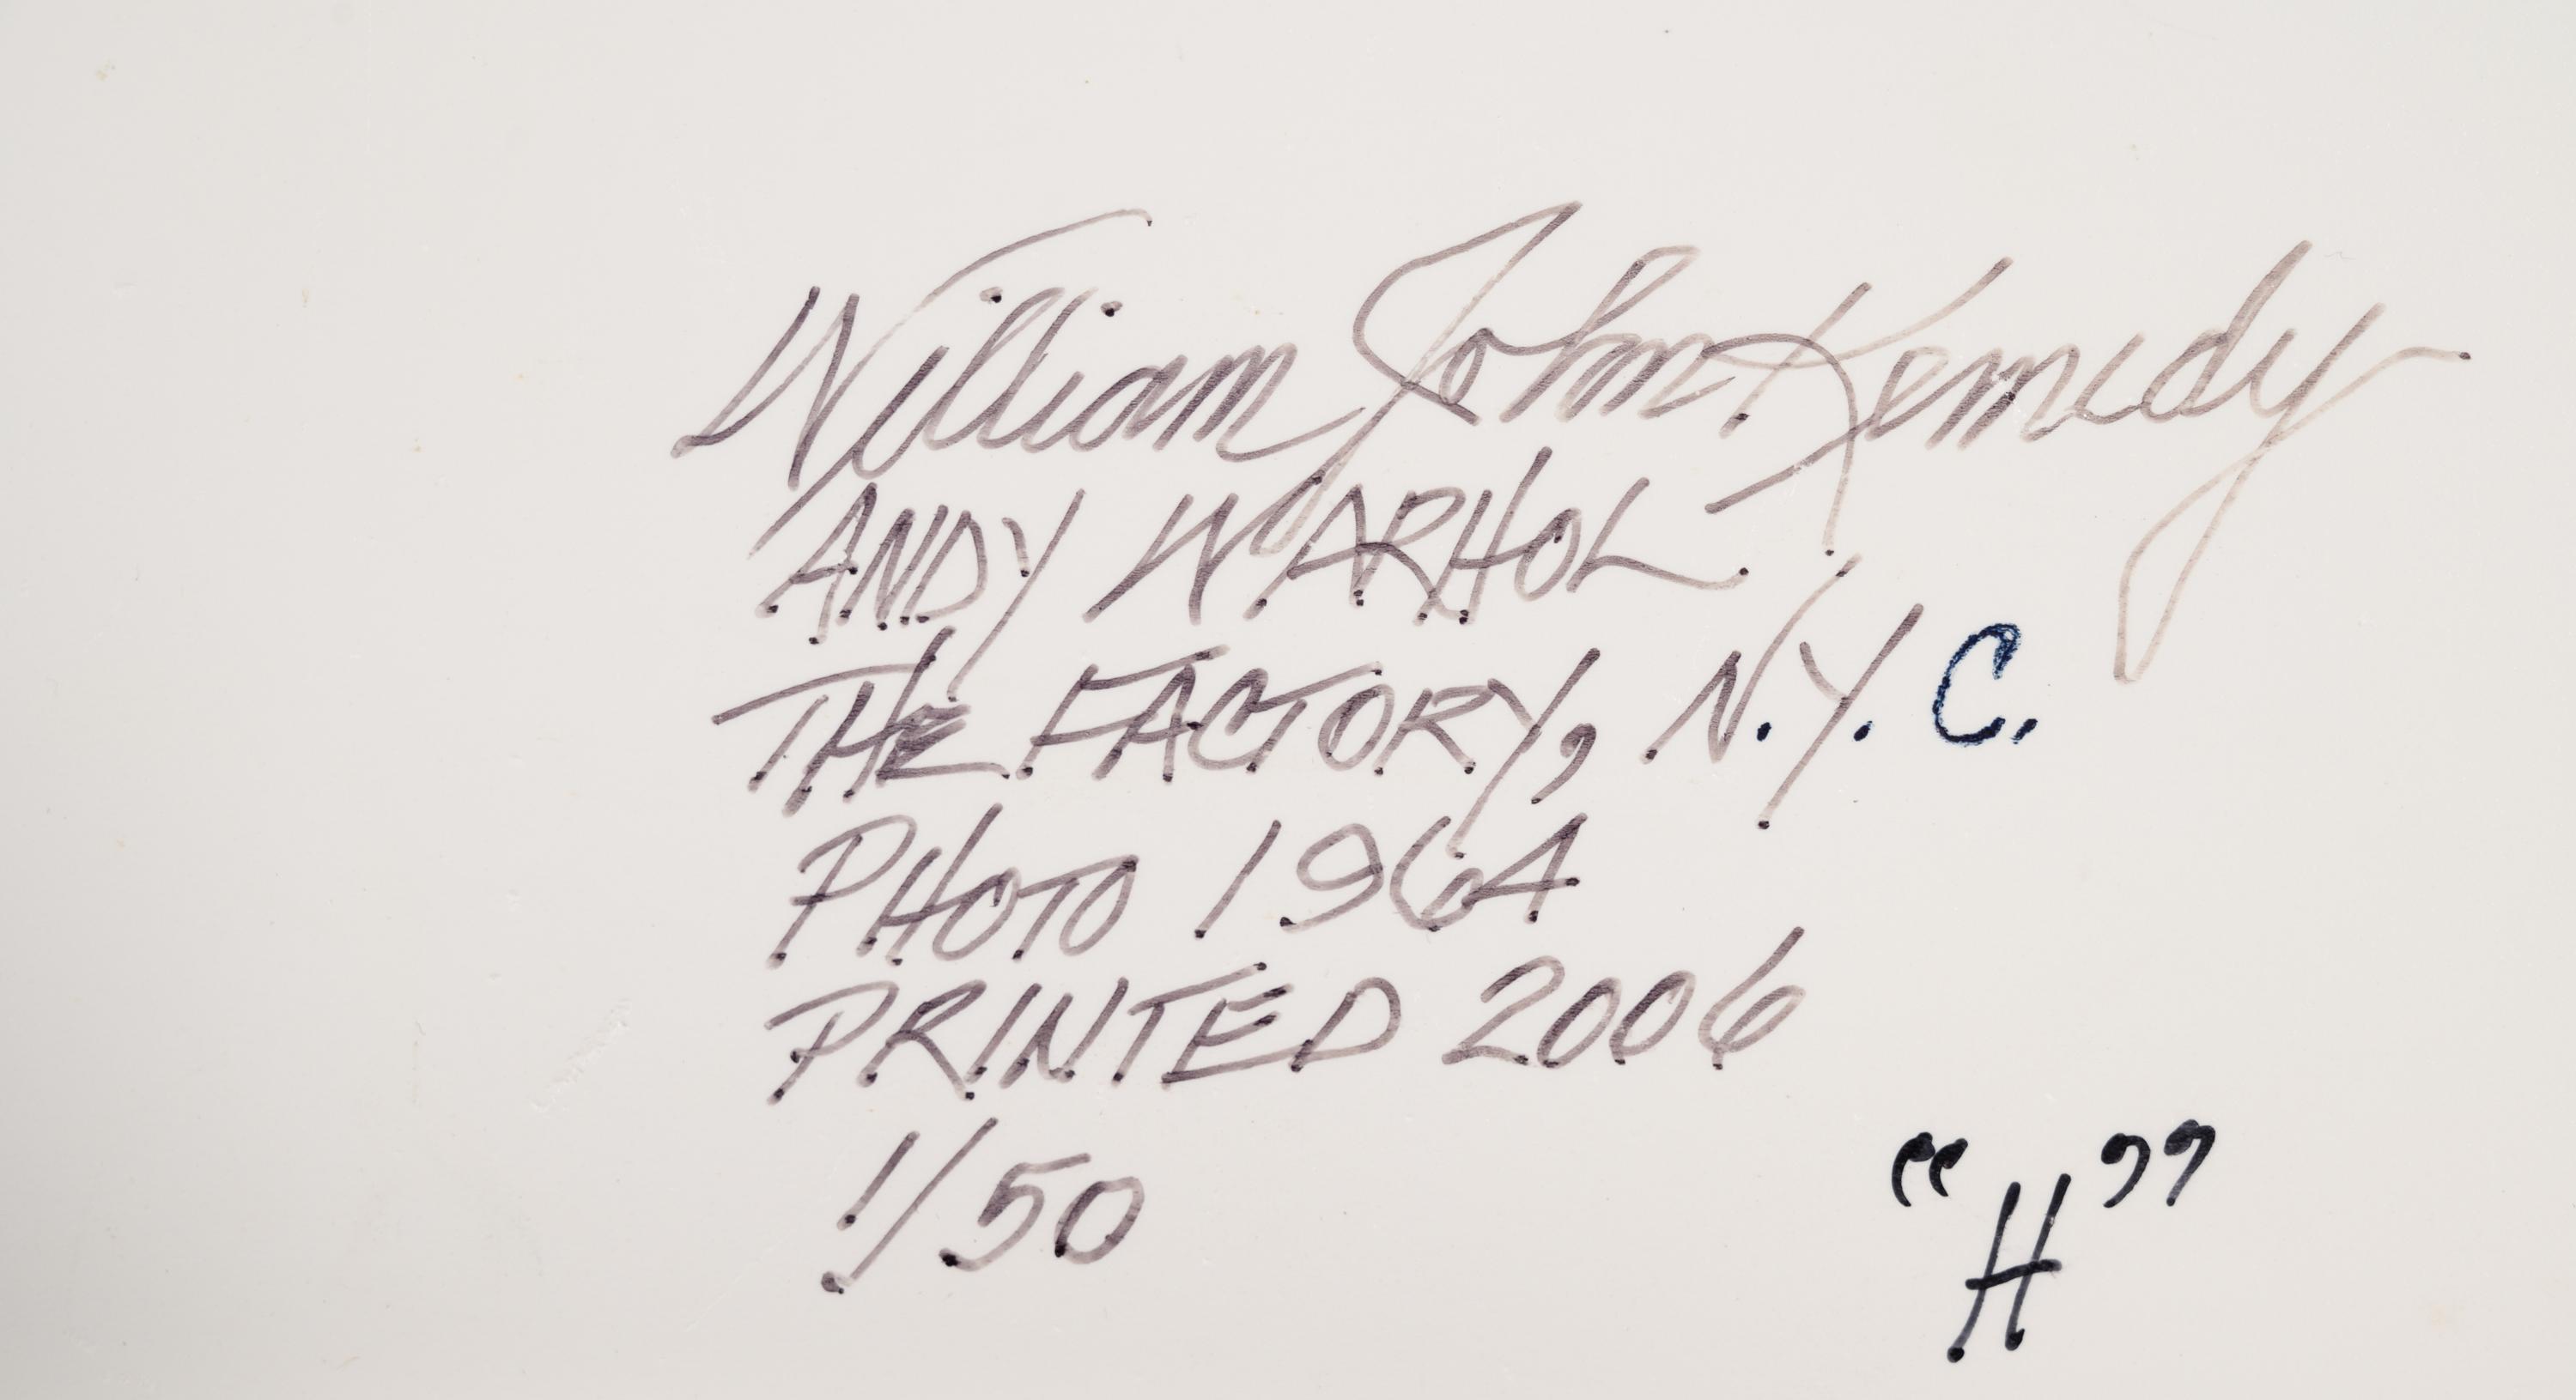 William John Kennedy
ANDY WARHOL
THE FACTORY, N.Y.C.
PHOTO 1964
PRINTED 2006
1/50
“H”